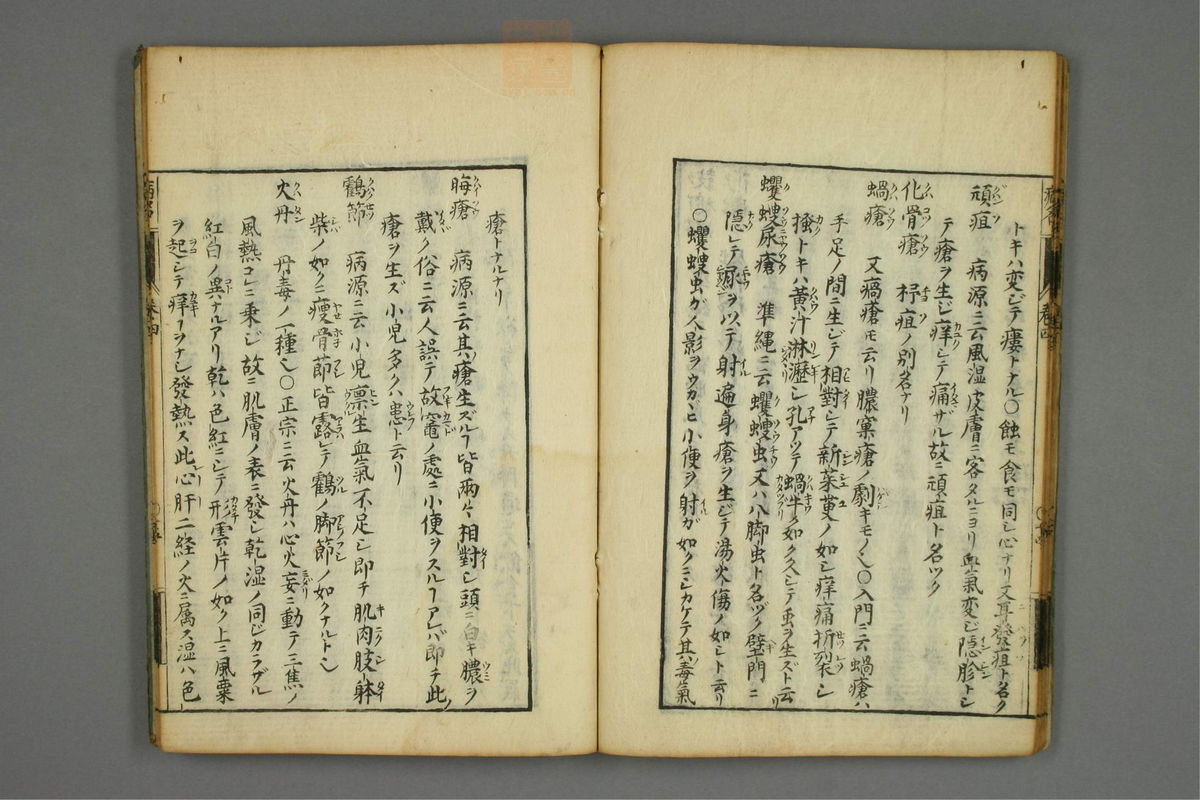 トキハ変ジテ瘻トナル〇蝕モ食モ同シ心ナリ又耳發疽ト名ク
頑疽 病源ニ云風湿皮膚ニ客タルニヨリ血氣変ジ隠胗トシ
テ瘡ヲ生ジ痒シテ痛ザル故ニ頑疽ト名ヅク
化骨瘡 杼疽ノ別名ナリ
蝸瘡 又瘑瘡モ云リ膿窠瘡ノ劇キモノ也〇入門ニ云蝸瘡ハ
手足ノ間ニ生ジテ相對シテ新茱萸ノ如シ痒痛折裂シ
搔トキハ黃汁淋瀝シ孔アツテ蝸牛ノ如ク久シテ虫ヲ生ズト云リ
蠼螋尿瘡 準縄ニ云蠼螋虫又ハ八脚虫ト名ヅク壁門ニ
隠レテ尿ヲ以テ射遍身瘡ヲ生ジテ湯火傷ノ如シト云リ
〇蠼螋虫ガ人影ヲウカヾヒ小便ヲ射ガ如クニシカケテ其毒氣
瘡トナルナリ
晦瘡 病源ニ云其瘡生ズルヿ皆兩々相對シ頭ニ白キ膿ヲ
戴ク俗ニ云人誤テ故竈ノ處ニ小便ヲスルヿアレバ即チ此ノ
瘡ヲ生ズ小児多クハ患ト云リ
鶴節 病源ニ云小児禀生血氣不足シ即チ肌肉肢躰
柴ノ如クニ痩骨節皆露レテ鶴ノ脚節ノ如クナルト也
火丹 丹毒ノ一種也〇正宗ニ云火丹ハ心火妄ニ動テ三焦ノ
風熱コレニ乗ジ故ニ肌膚ノ表ニ發シ乾湿ノ同ジカラザル
紅白ノ異ナルアリ乾ハ色紅ニシテ形雲片ノ如ク上ニ風粟
ヲ起シテ痒ヿヲナシ發熱ス此心肝二経ノ火ニ属ス湿ハ色
巻四
巻四